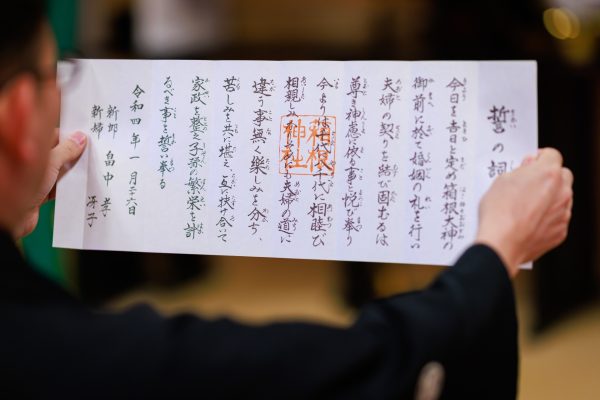 誓の詞
今日を吉日と定め箱根大神の
御前に於て婚姻の礼を行い
夫婦の契りを結び固むるは
尊き神慮に依る事と悦び奉り
今より 代八千代に相睦び
相親しみ にも夫婦の道に
違う事無く楽しみを分ち、
苦しみを共に堪え互に扶け合いて
家政を整え子孫の繁栄を計
るべき事を誓い奉る
令和四年一月二六日
新郎 畠中 孝
新婦 冴子
箱根
神社